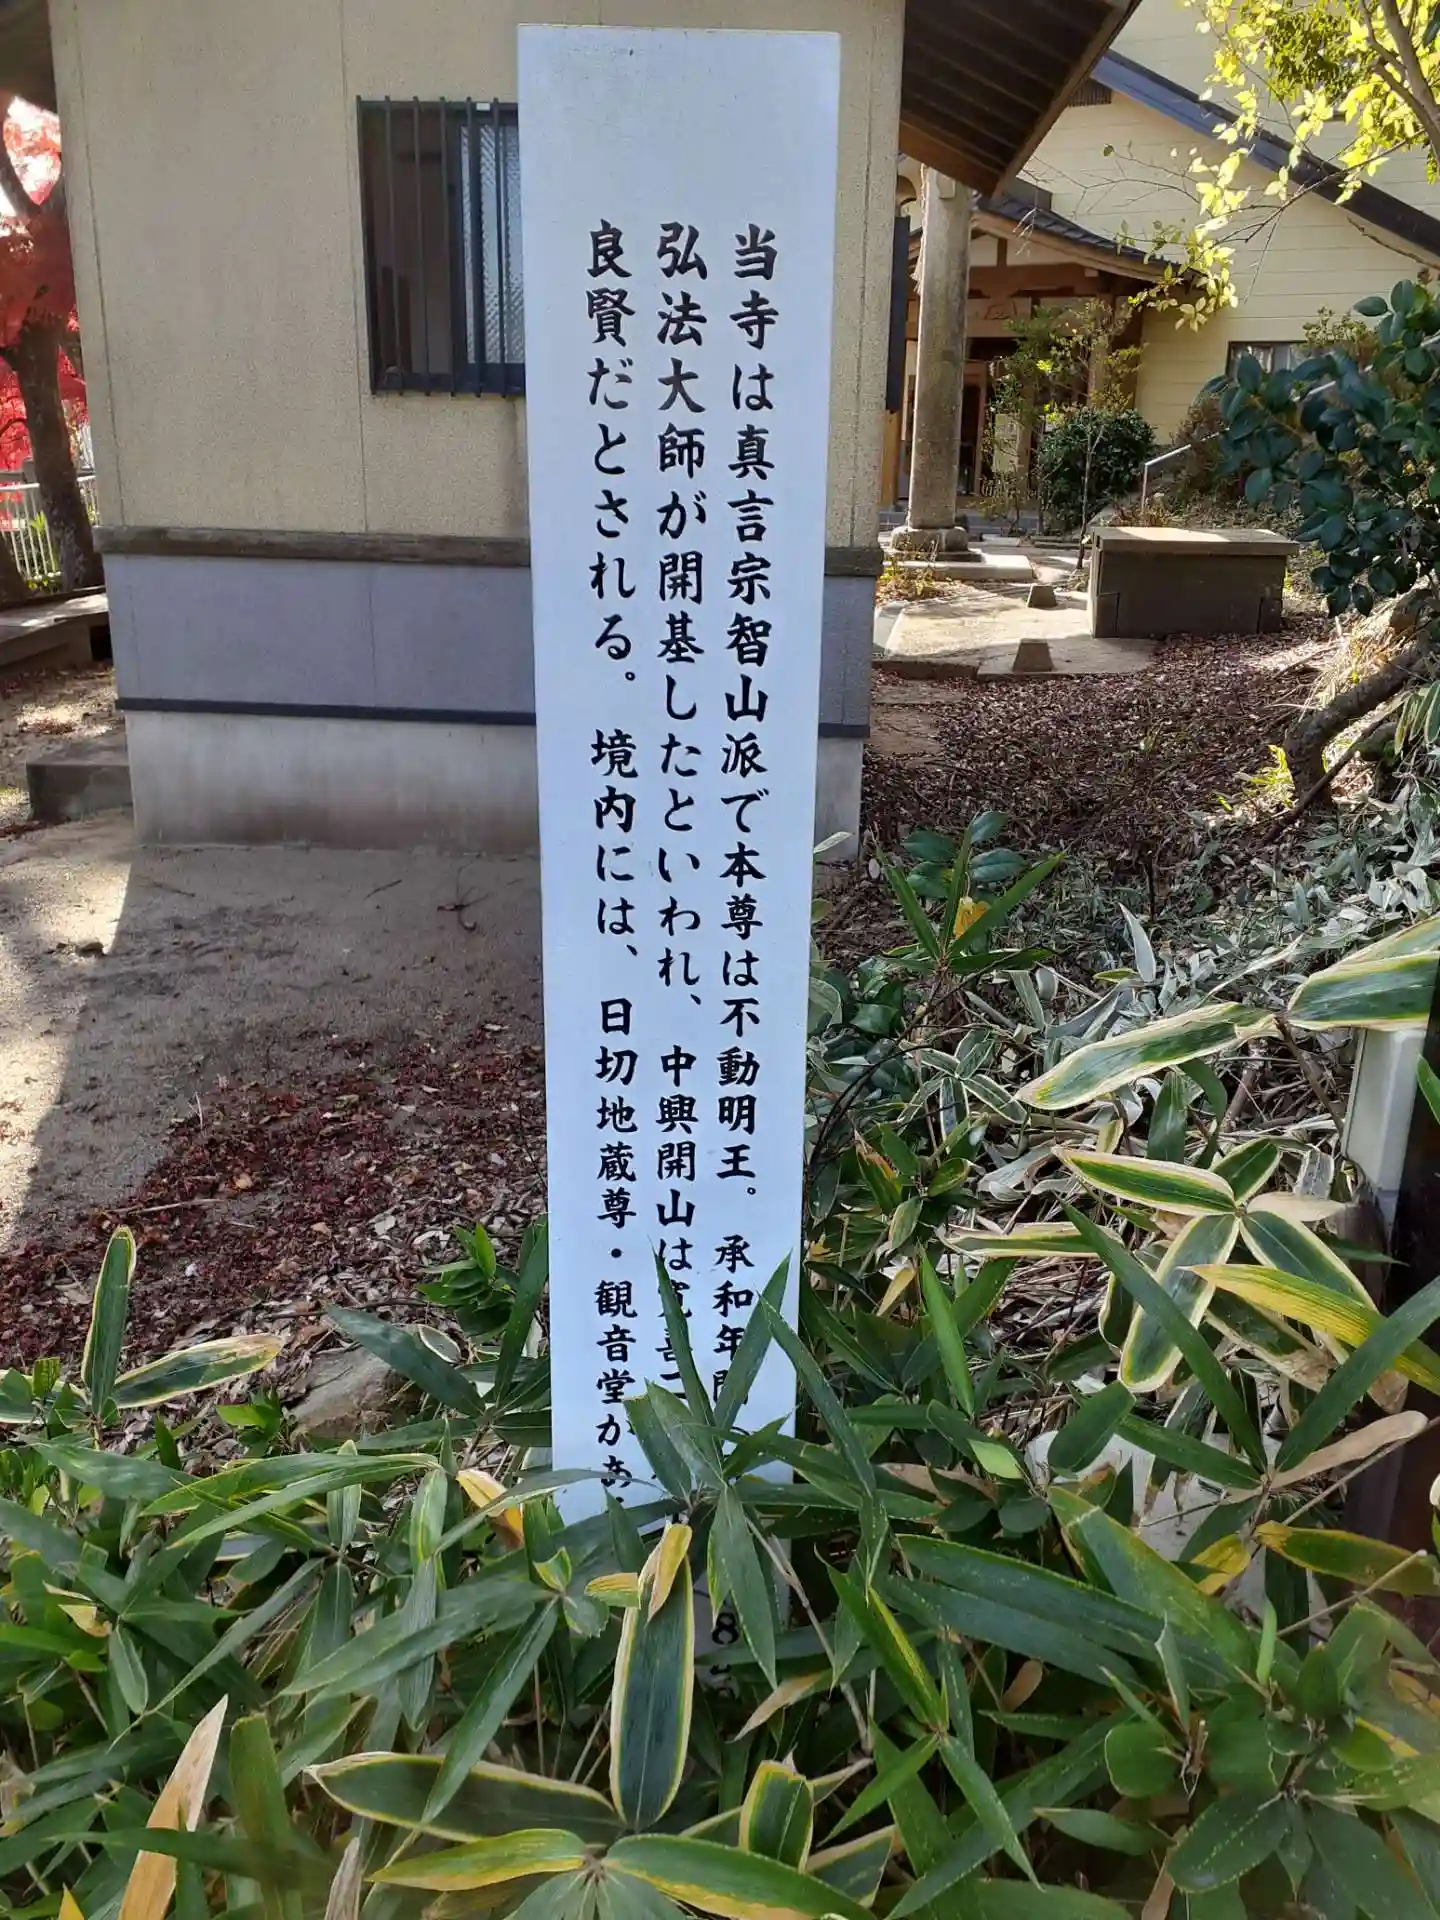 当寺は真言宗智山派で本尊は不動明王。承和年間 8
弘法大師が開基したといわれ、中興開山は寛喜二
良賢だとされる。境内には、日切地蔵尊・観音堂があ